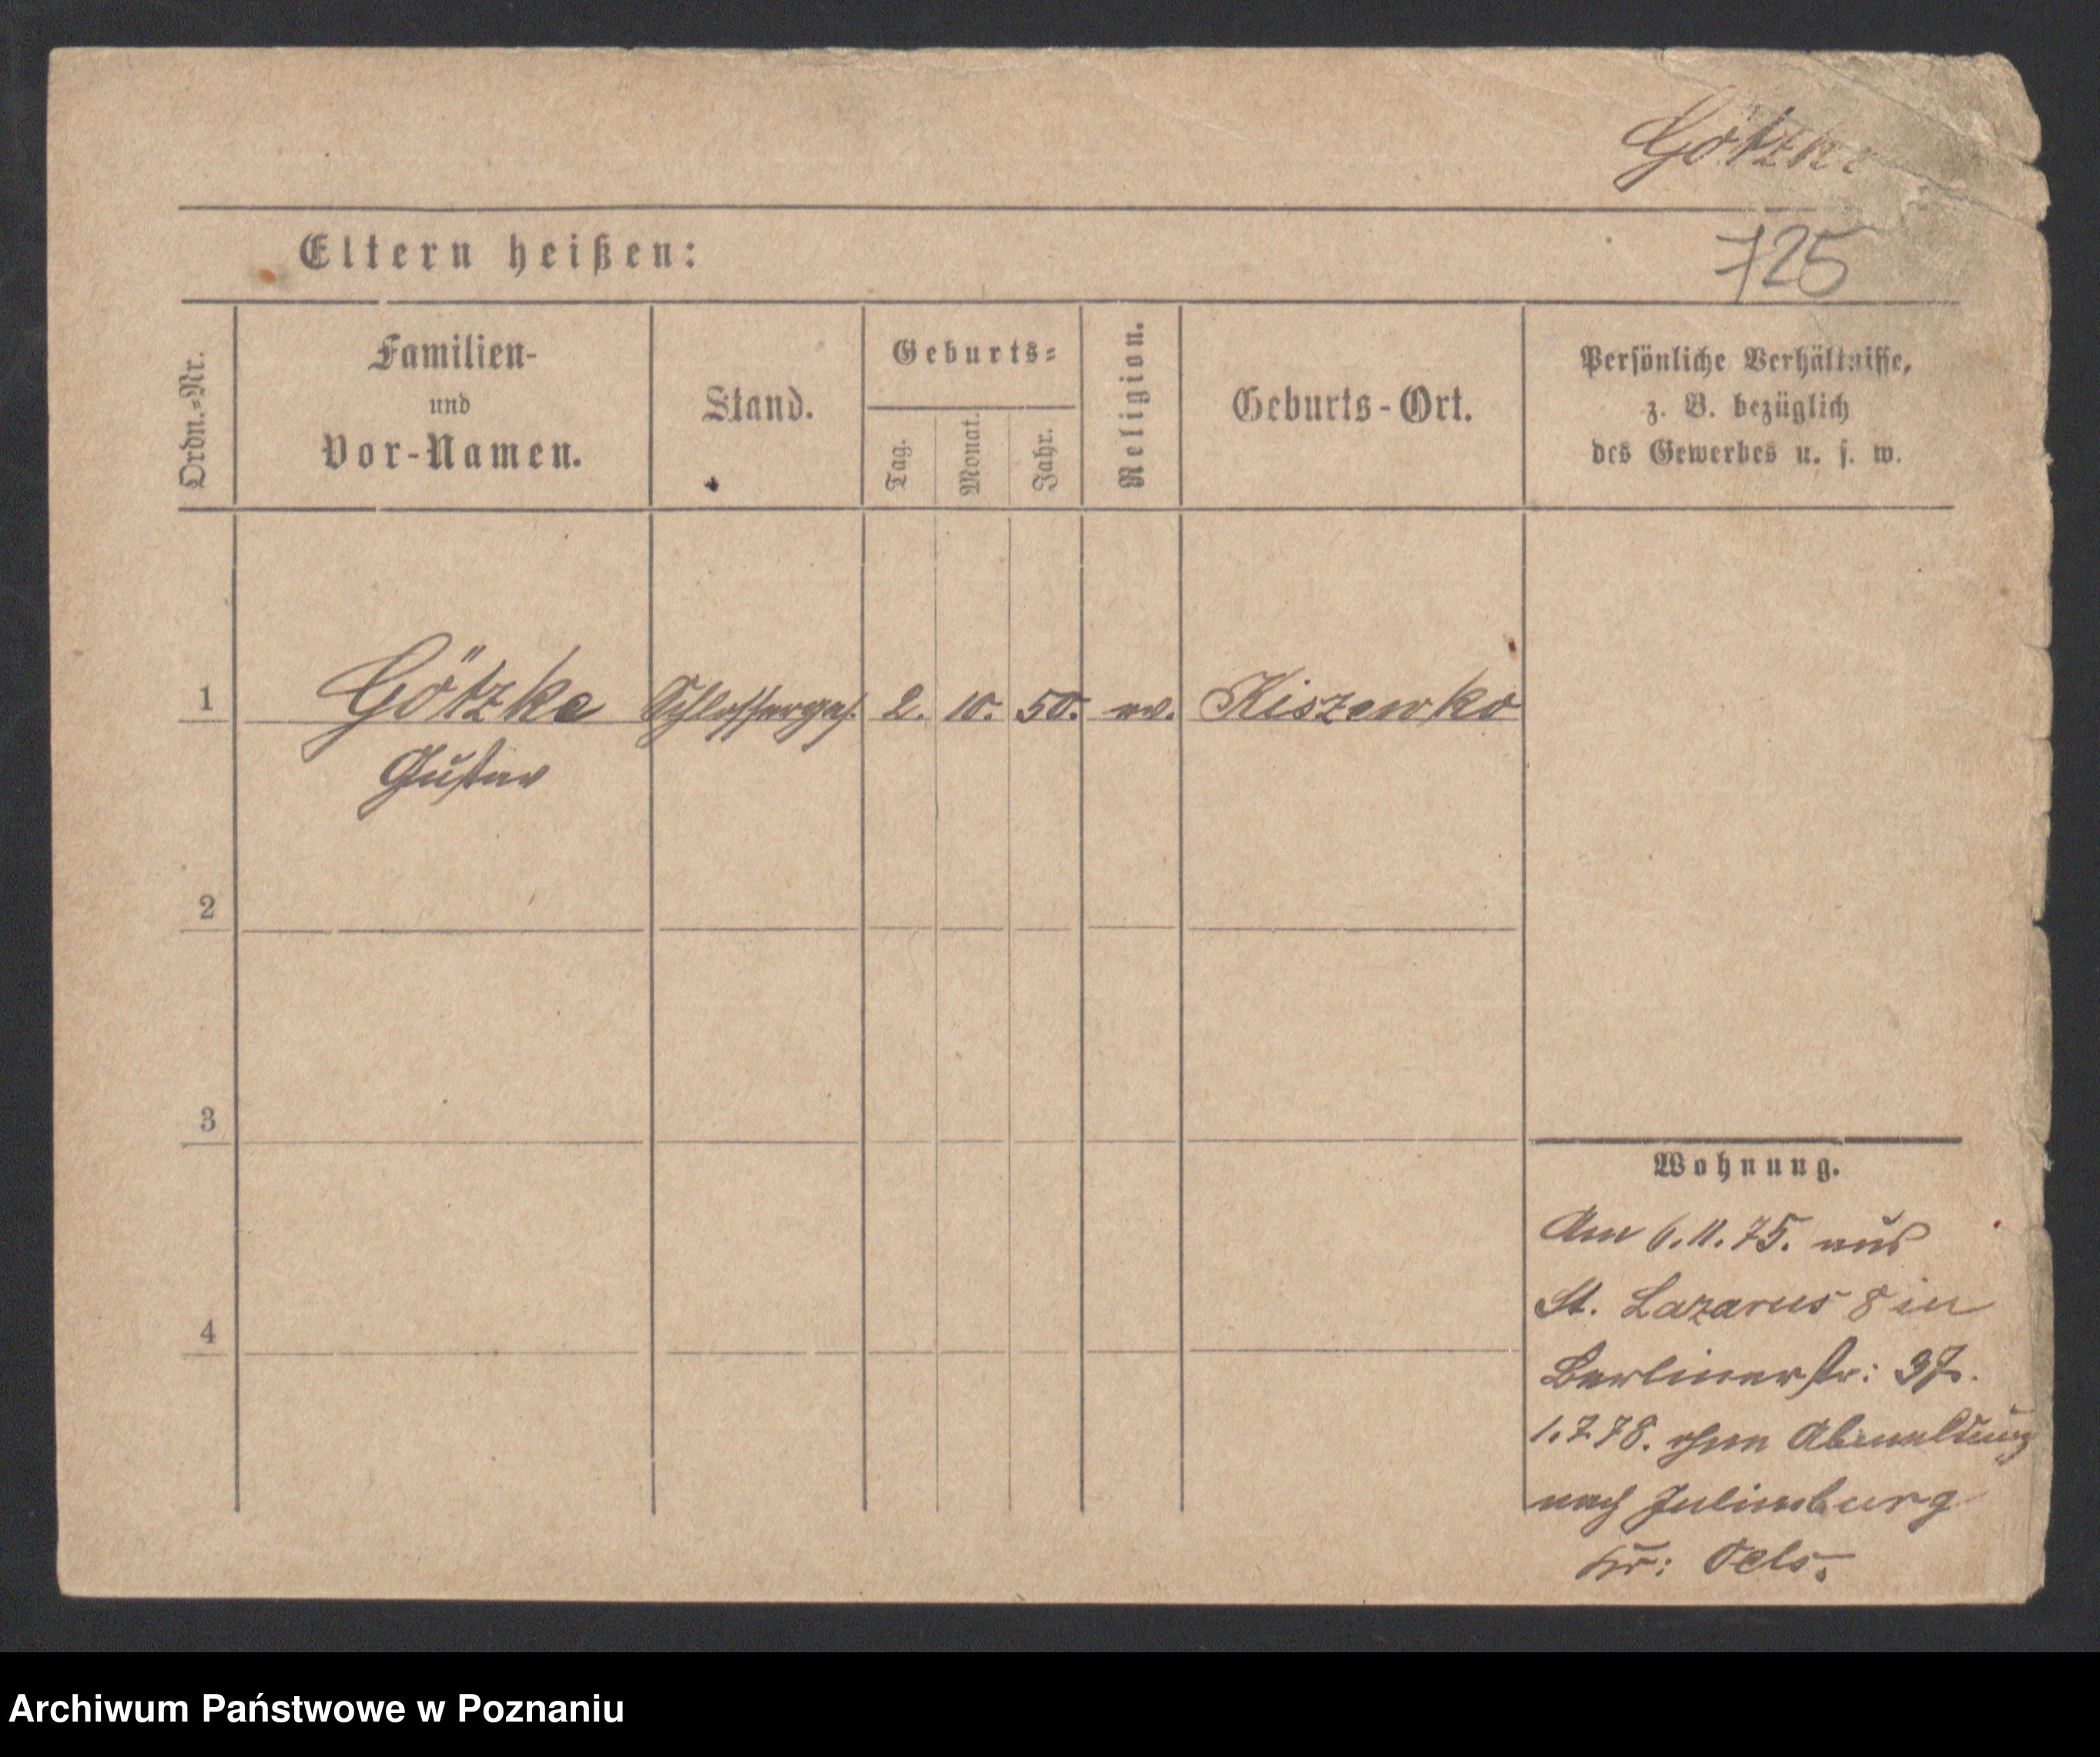 Götzke
725
Eltern heißen:
Ordn.-Nr.
Familien-
und
Vor-Namen.
Stand.
Geburts-
Tag.
Monat.
Jahr.
Religion.
Geburts-Ort.
Persönliche Verhältnisse,
z. B. bezüglich
des Gewerbes u. s. w.
1 Götzke Schlosserges. 2. 10. 50. ev. Kiszewko
Gustav
2
3
4
Wohnung.
Am 6.11.75. aus
St. Lazarus 8 in
Berlinerstr: 37.
1.7.78. ohne Abmeldung
nach Juliusburg
Kr: Oels.
Archiwum Państwowe w Poznaniu